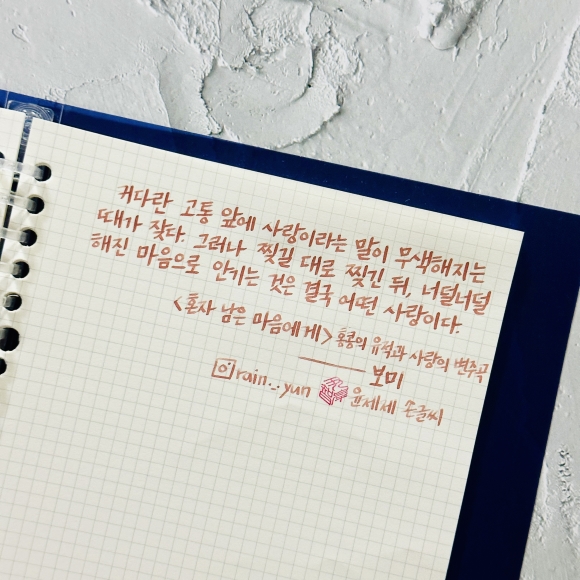 커다란 고통 앞에 사랑이라는 말이 무색해지는
때가 잦다. 그러나 찢길 대로 찢긴 뒤, 너덜너덜
해진 마음으로 안기는 것은 결국 어떤 사랑이다.
<혼자 남은 마음에게> 홍콩의 유석과 사랑의 변주곡
보미
rain_.yun 윤세세 손글씨